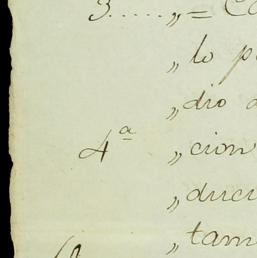 3......„= C
„lo p
„dio
4ª „cion
„duci
„tam